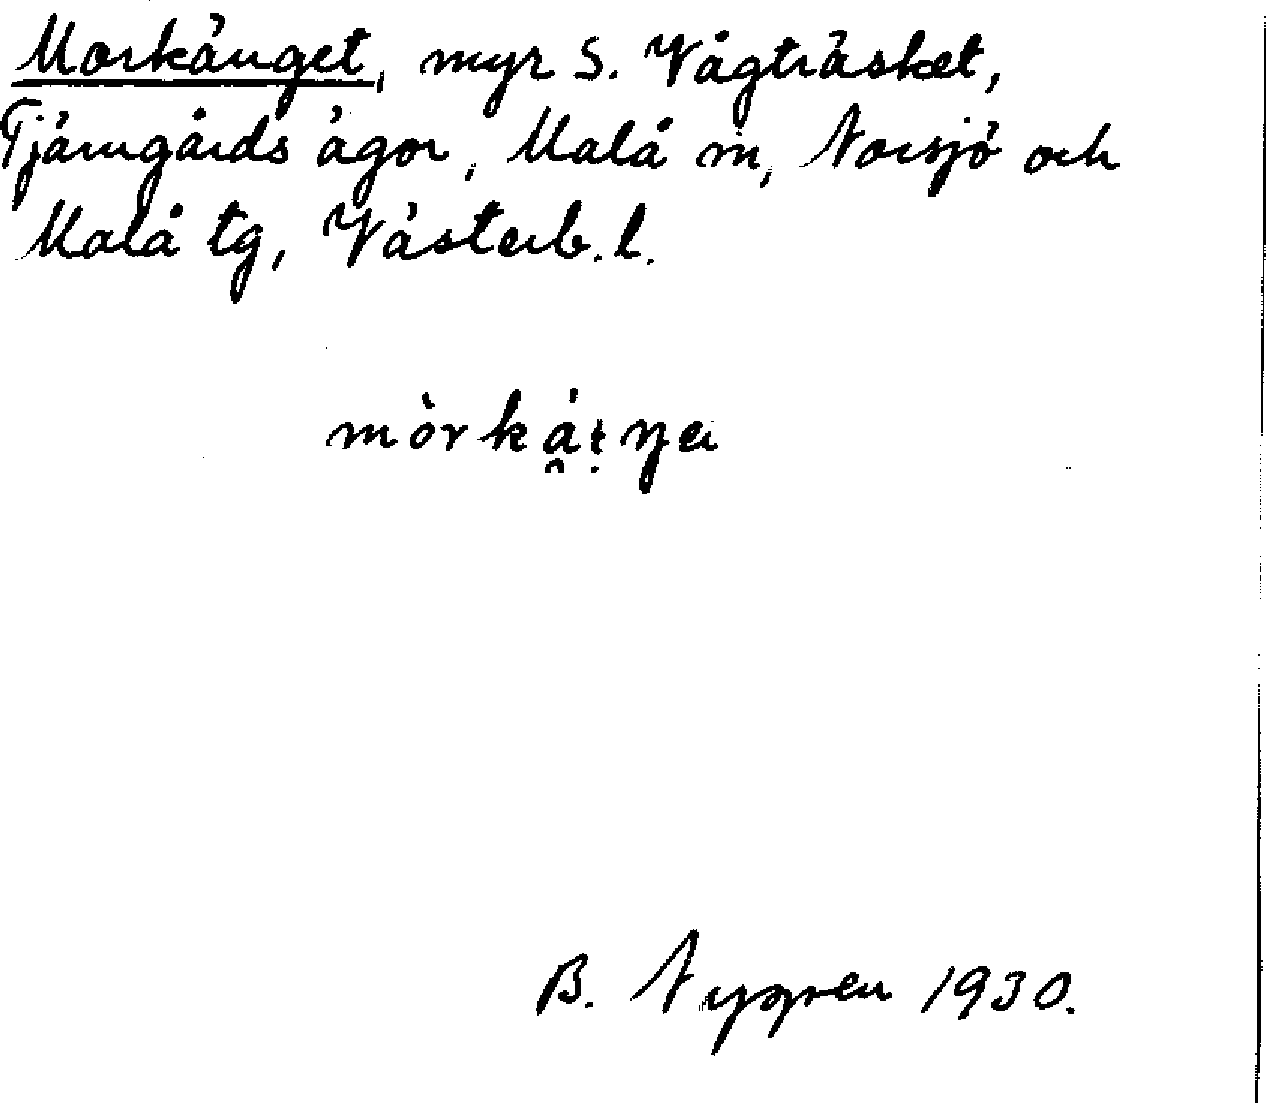 Morkänget, myr S. Vågträsket,
Tjärngårds ägor, Malå sn, Norsjö och
Malå tg, Västerb. l.
B. Nygren 1930.